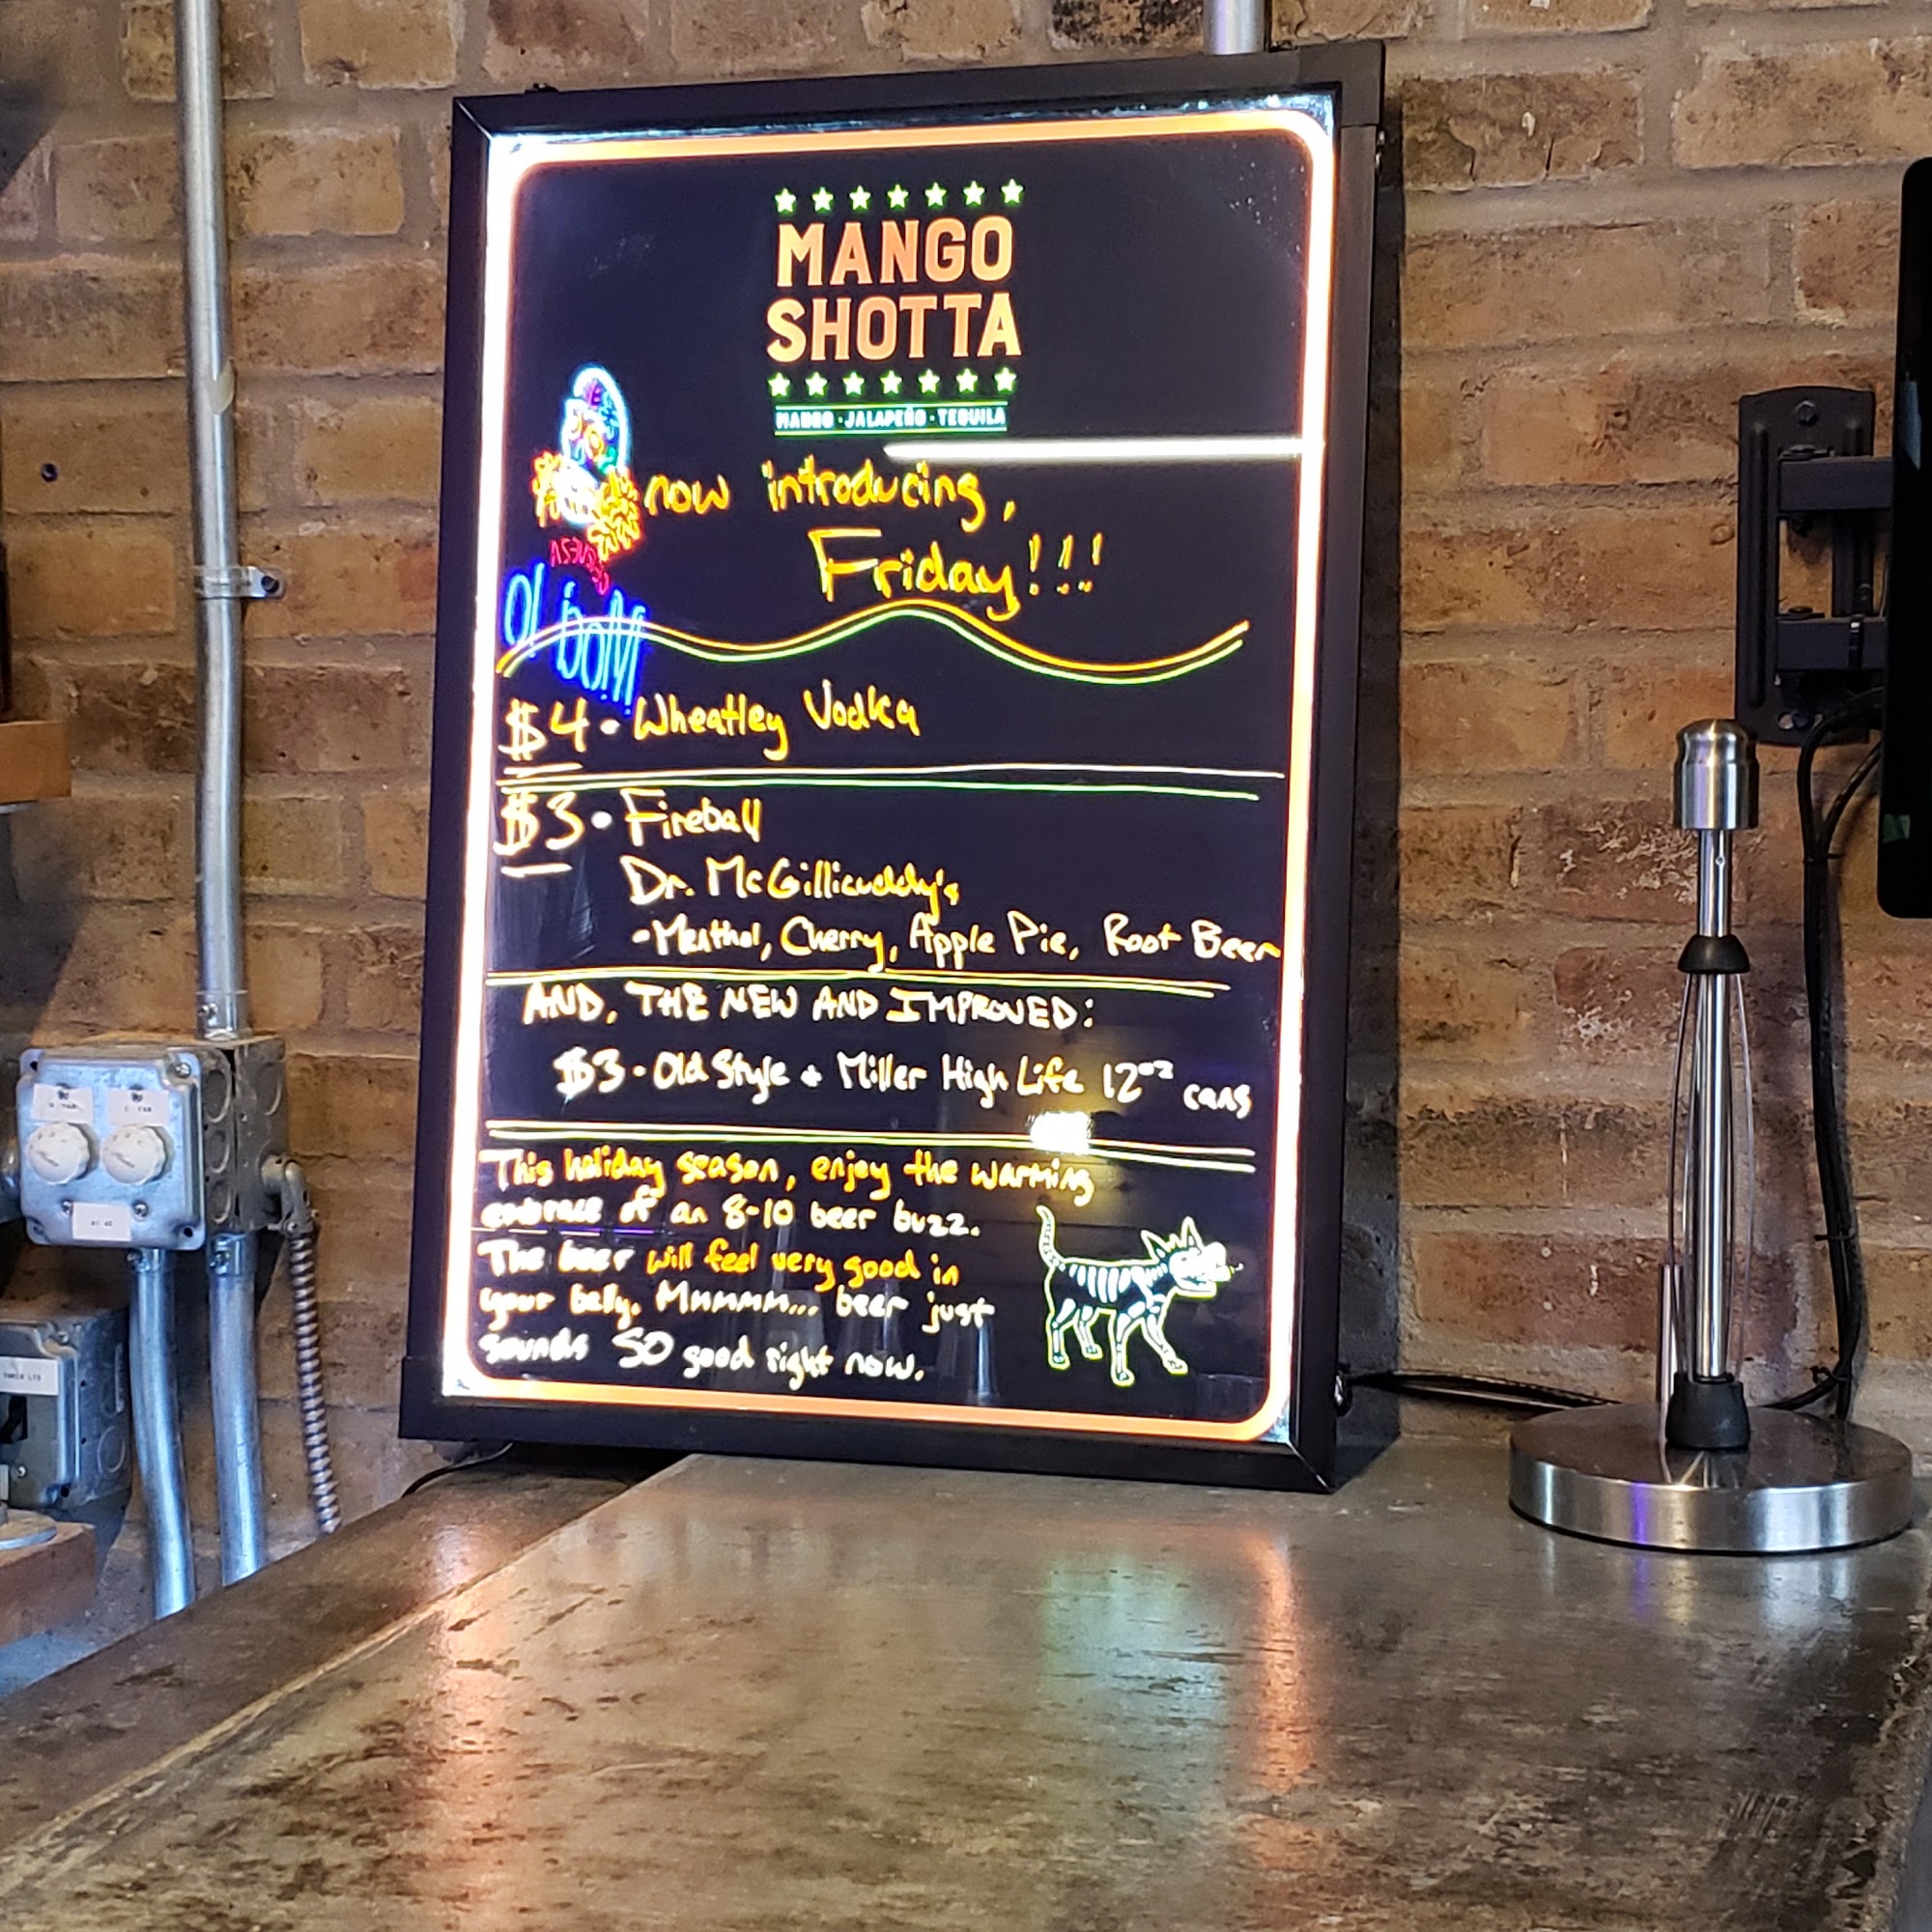 MANGO
SHOTTA
MANGO · JALAPEÑO · TEQUILA
now introducing,
Friday!!!
$4 - Wheatley Vodka
$3 - Fireball
Dr. McGillicuddy's
-Menthol, Cherry, Apple Pie, Root Beer
AND, THE NEW AND IMPROVED:
$3 - Old Style + Miller High Life 12oz cans
This holiday season, enjoy the warming
embrace of an 8-10 beer buzz.
The beer will feel very good in
your belly. Mmmmm... beer just
sounds SO good right now.